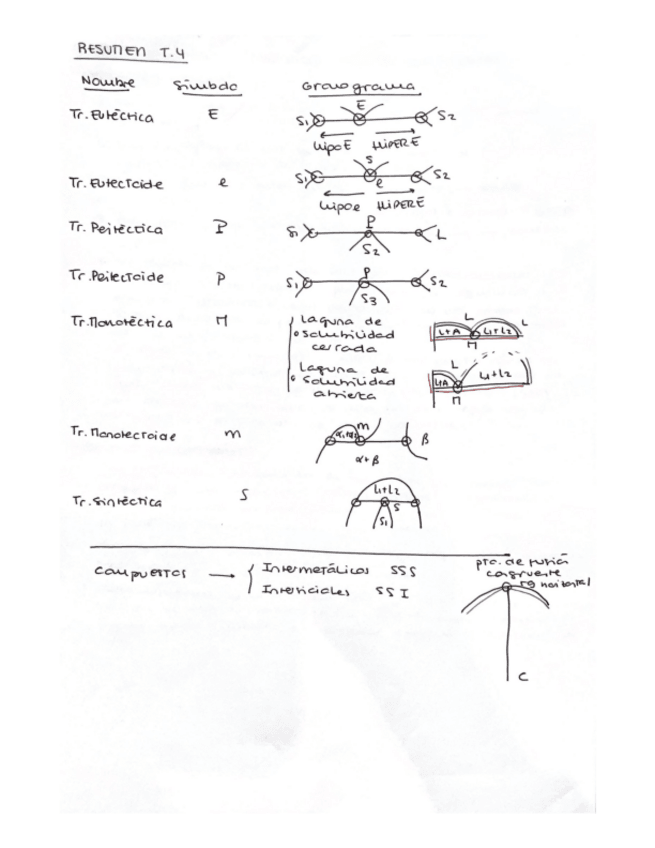 RESUMEN T.4
Nombre Símbolo Gronograma
Tr. Eutéctica E S1 E S2
HipoE HiPERE
Tr. Eutectoide e S1 S e S2
Hipoe HiPERE
Tr. Peritéctica P S1 P L
S2
Tr. Peritectoide P S1 P S2
S3
Tr. Monotéctica M Laguna de solubilidad cerrada L L+A L1+L2 L M
Laguna de solubilidad abierta L L+A L1+L2 M
Tr. Monotectoide m α1+α2 m β
α+β
Tr. Sintéctica S L1+L2 S
S1
Compuestos → Intermetálicos SSS
Intersticiales SSI
pto. de fusión
congruente
tg horizontal
C